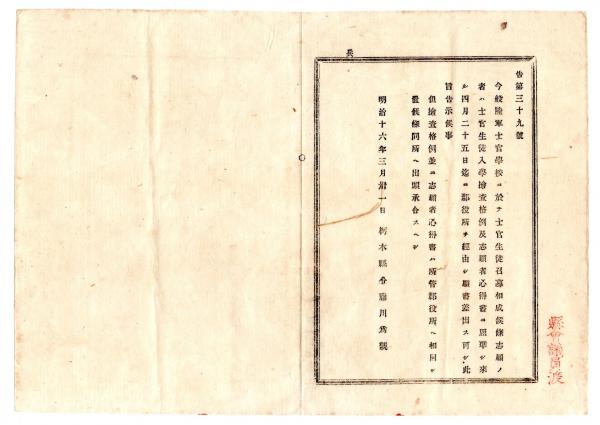 兵
告第三十九號
今般陸軍士官學校ニ於テ士官生徒召募相成候條志願ノ
者ハ士官生徒入學撿查格例及志願者心得書ニ照準シ來
ル四月二十五日迄ニ郡役所ヲ經由シ願書差出ス可シ此
旨告示候事
但撿查格例並ニ志願者心得書ハ所管郡役所ヘ相回シ
置候條同所ヘ出頭承合スヘシ
明治十六年三月卅一日 栃木縣令藤川爲親
縣會議員渡